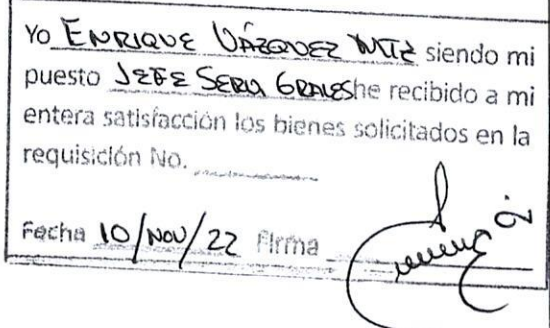 Yo ENRIQUE VÁZQUEZ siendo mi
puesto JEFE SERV GRALES he recibido a mi
entera satisfacción los bienes solicitados en la
requisición No.
Fecha 10/NOV/22 Firma